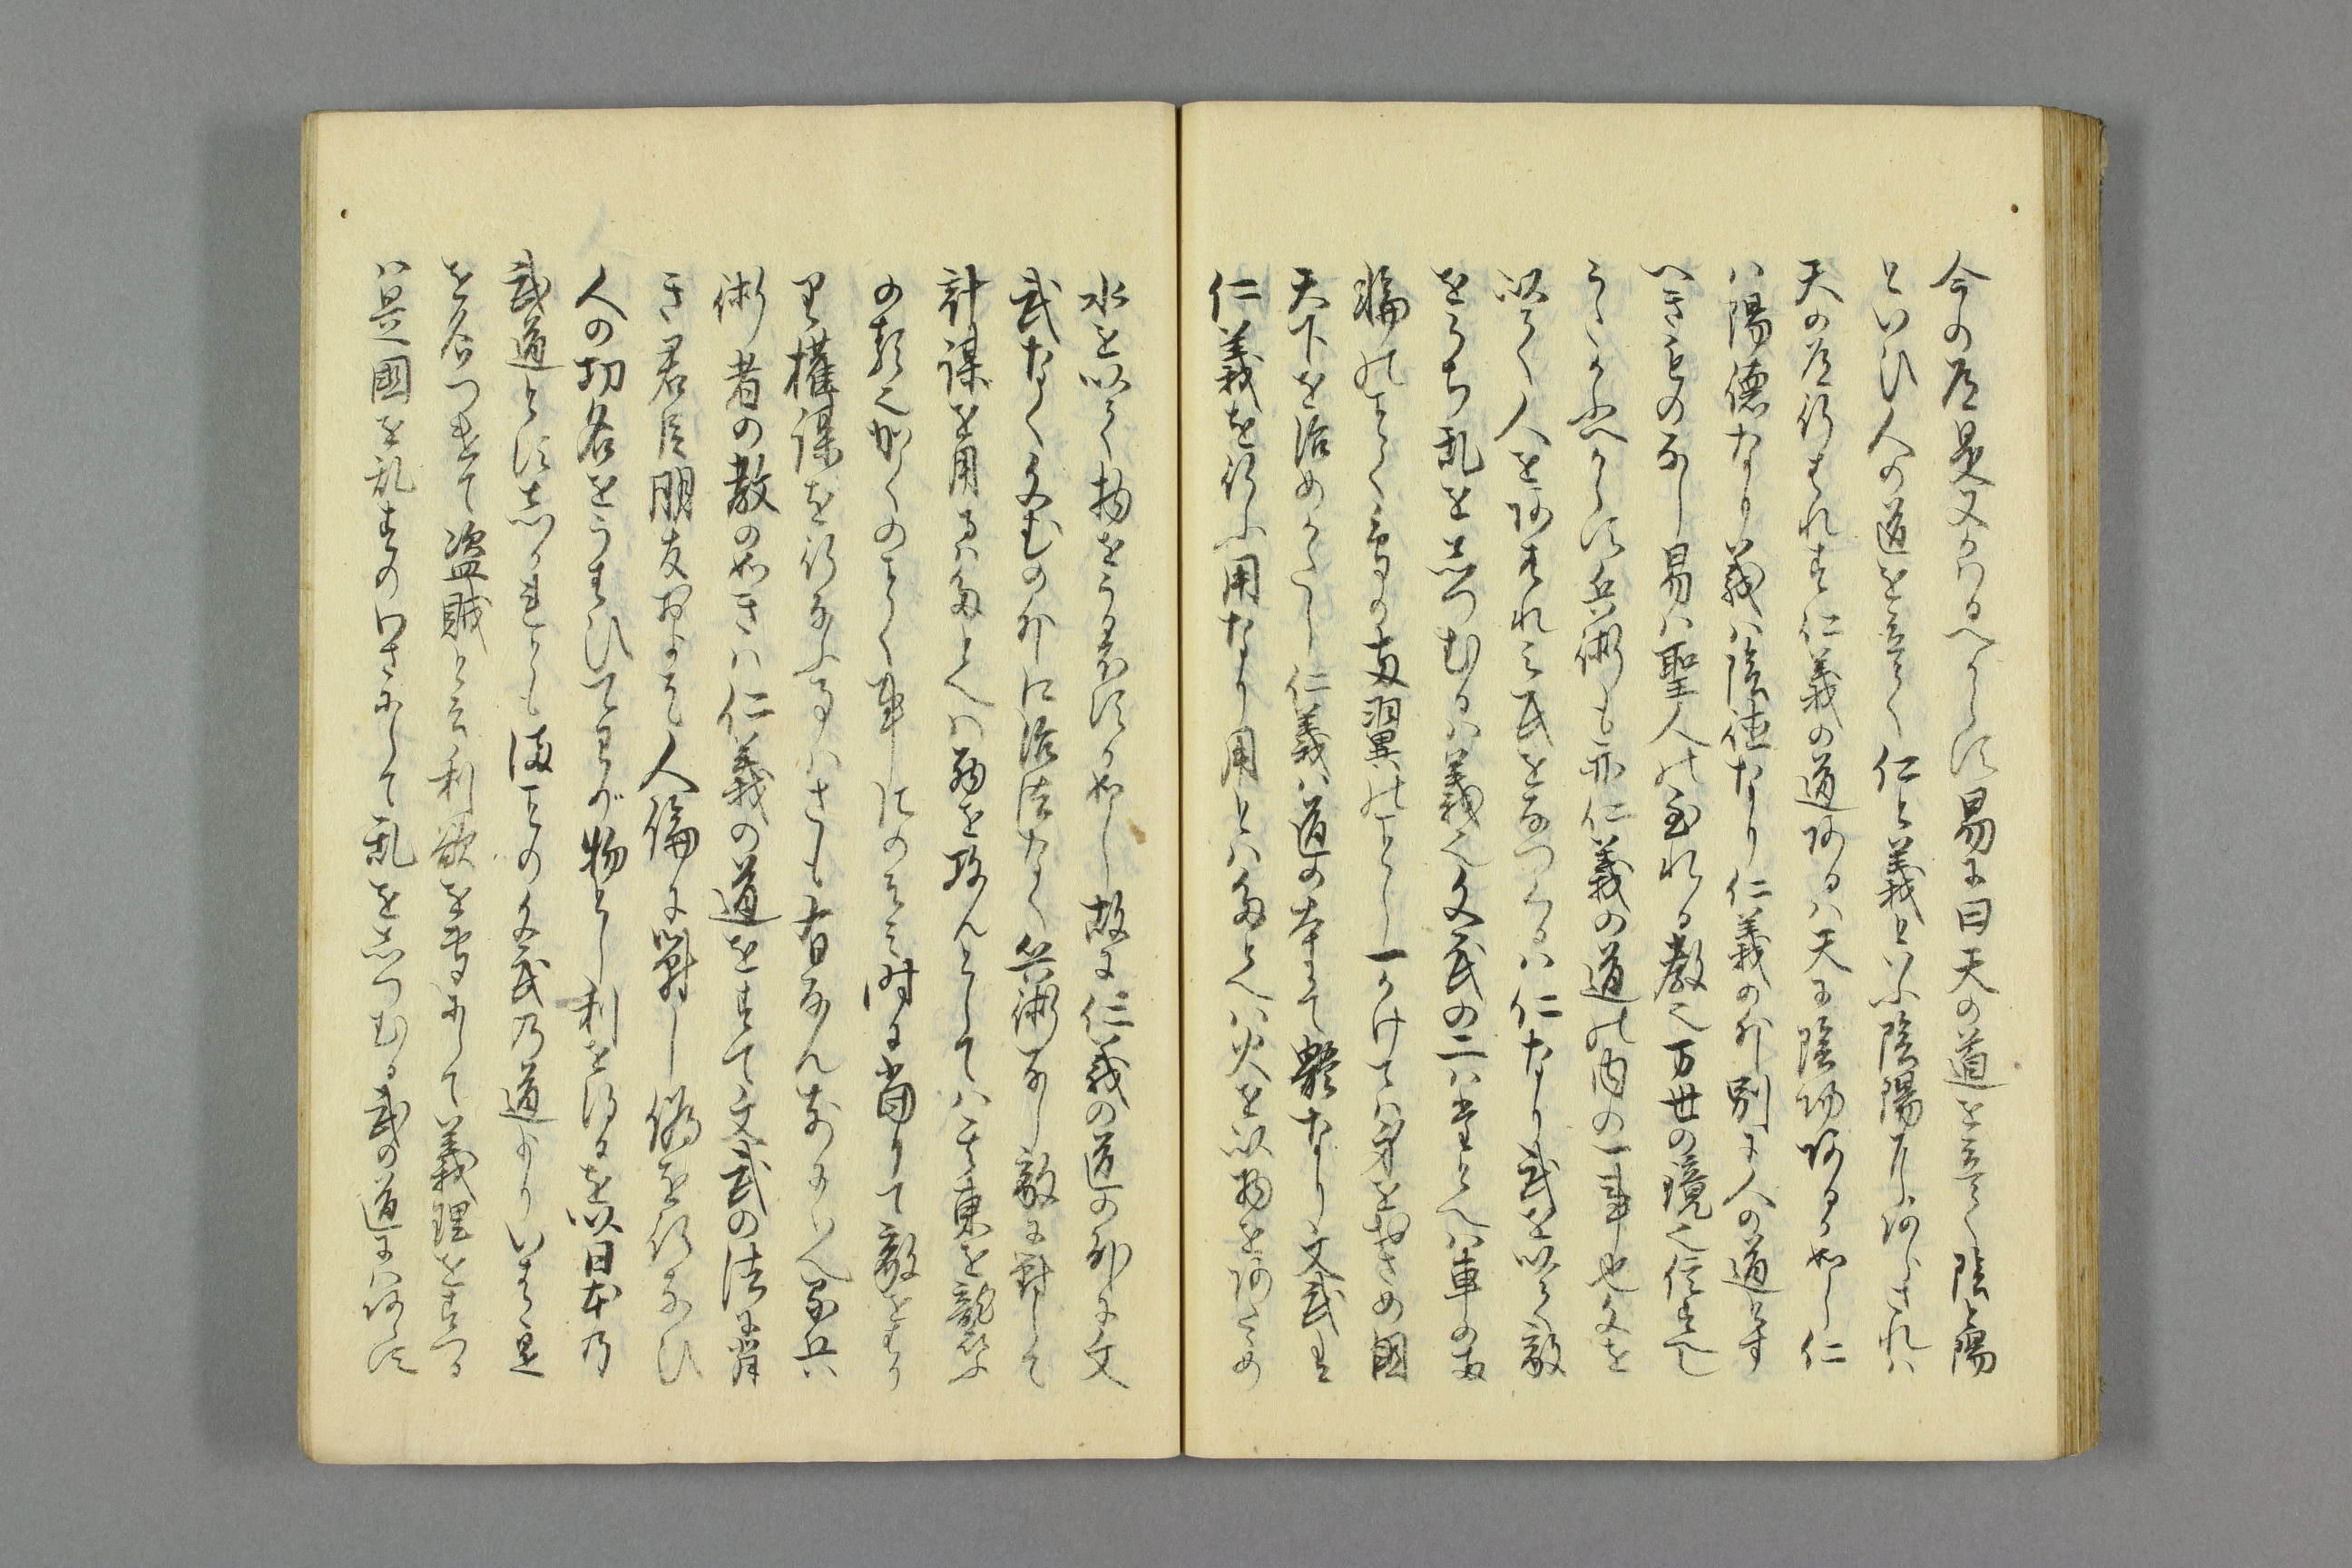 今の道是又かはるへからす易に曰天の道を立て陰と陽
といひ人の道を立て仁と義といふ陰陽にあらされは
天の道行はれす仁義の道あるハ天に陰陽あるか如し仁
ハ陽徳なり義ハ陰徳なり仁義の外別に人の道とす
へきものなし易ハ聖人の至れる教也万世の鏡也信せすして
うたかふへからす兵術も亦仁義の道の内の一事也文を
以て人をあはれミ民をなつくるハ仁なり武を以て敵
をうち乱をしつむるハ義也文武の二ハたとへハ車の両
輪のことく鳥の両翼のことし一かけてハ身をおさめ国
天下を治めかたし仁義ハ道の本にて体なり文武は
仁義を行ふ用なり用とハたとへハ火を以物をあたゝめ
水を以て物をうるほすか如し故に仁義の道の外に文
武なく文武の外に治法なく兵術なし敵に対して
計謀を用るハたとへハ西を攻んとしてハ其東を襲ふ
の類也かくのことく事にのそミ時に当りて敵をはか
り權謀を行なふ事ハさも有なん前にいへる兵
術者の教の如きハ仁義の道をすて文武の法に背
き君臣朋友およそ人倫に対し偽を行なひ
人の功名をうはひてわが物とし利を得るを以日本の
武道とす志かれとも誠の文武の道よりいはゝ是
を名つけて盗賊と云利欲を専にして義理をすつる
ハ是国を乱すのわさにして乱をしつむる武の道にハあらす